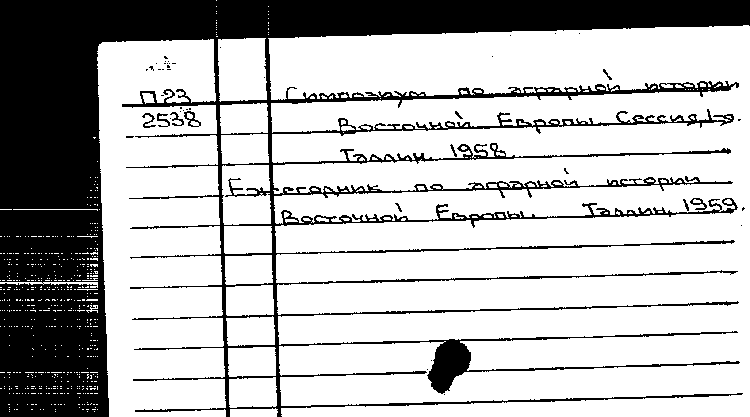 П23 Симпозиум по аграрной истории
2538 Восточной Европы. Сессия, 1-я.
Таллин. 1958.
Ежегодник по аграрной истории
Восточной Европы. Таллин, 1959.